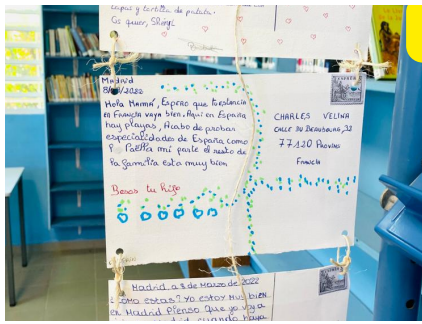 capas y tortilla de patata.
Os quier, Shinji
Madrid
8/ /2022
Hola Mamá, Espero que tu estancia
en Francia vaya bien. Aqui en España
hay playas, Acabo de probar
especialidades de España como
la Paella mi parte el resto de
la familia esta muy bien
Besos tu hijo
ESPAÑA
CHARLES VELINA
CALLE DU BEAUBOURG, 32
77120 Provins
Francia
Madrid, a 8 de Marzo de 2022
¿Como estas? Yo estoy muy bien
en Madrid Pienso que ya voy a
cuando haya